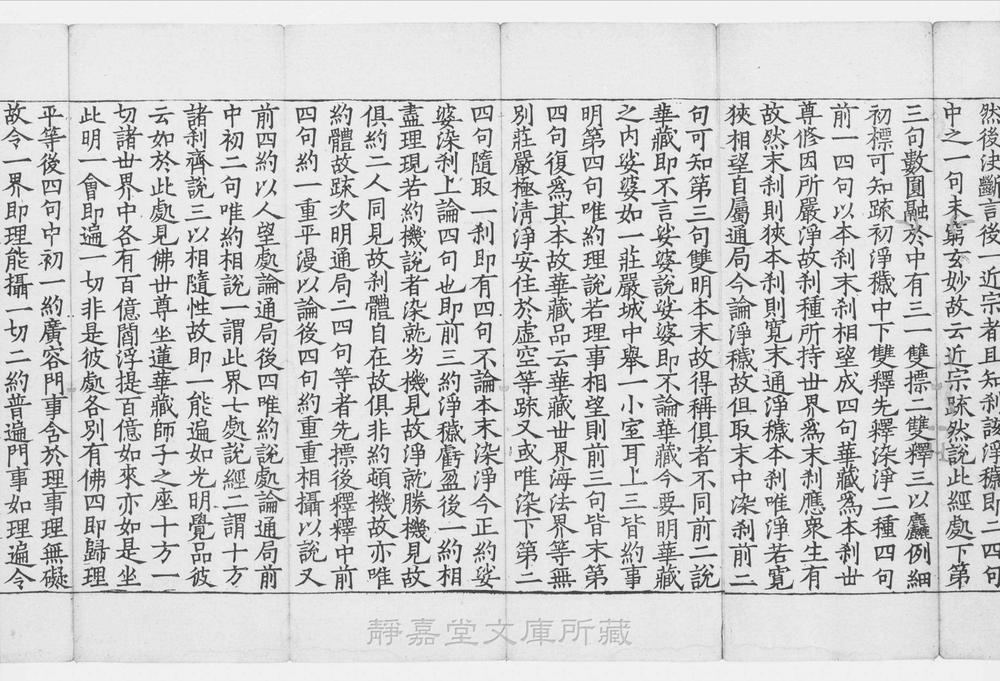 然後法斷言後一近宗者且知該淨穢即二四句
中之一句未窮玄妙故云近宗疏然說此經處下第
三句數圓融於中有三一雙標二雙釋三以麤例細
初標可知疏初淨穢中下雙釋先釋染淨二種四句
前一四句以本刹末刹相望成四句華藏爲本刹世
尊修因所嚴淨故刹種所持世界爲末刹應衆生有
故然末刹則狹本刹則寬末通淨穢本刹唯淨若寬
狹相望自屬通局今論淨穢故但取末中染刹前二
句可知第三句雙明本末故得稱俱者不同前二說
華藏即不言娑婆說娑婆即不論華藏今要明華藏
之内娑婆如一莊嚴城中舉一小室耳上三皆約事
明第四句唯約理說若理事相望則前三句皆末第
四句復爲其本故華藏品云華藏世界海法界等無
別莊嚴極清淨安住於虛空等疏又或唯染下第二
四句隨取一刹即有四句不論本末染淨今正約娑
婆染刹上論四句也即前三約淨穢虧盈後一約相
盡理現若約機說者染就劣機見故淨就勝機見故
俱約二人同見故刹體自在故俱非約頓機故亦唯
約體故疏次明通局二四句等者先摽後釋釋中前
四句約一重平漫以論後四句約重重相攝以說又
前四約以人望處論通局後四唯約說處論通局前
中初二句唯約相說一謂此界七處說經二謂十方
諸刹齊說三以相隨性故即一能遍如光明覺品彼
云如於此處見佛世尊坐蓮華藏師子之座十方一
切諸世界中各有百億閻浮提百億如來亦如是坐
此明一會即遍一切非是彼處各別有佛四即歸理
平等後四句中初一約廣容門事含於理事理無礙
故令一界即理能攝一切二約普遍門事如理遍令
靜嘉堂文庫所藏